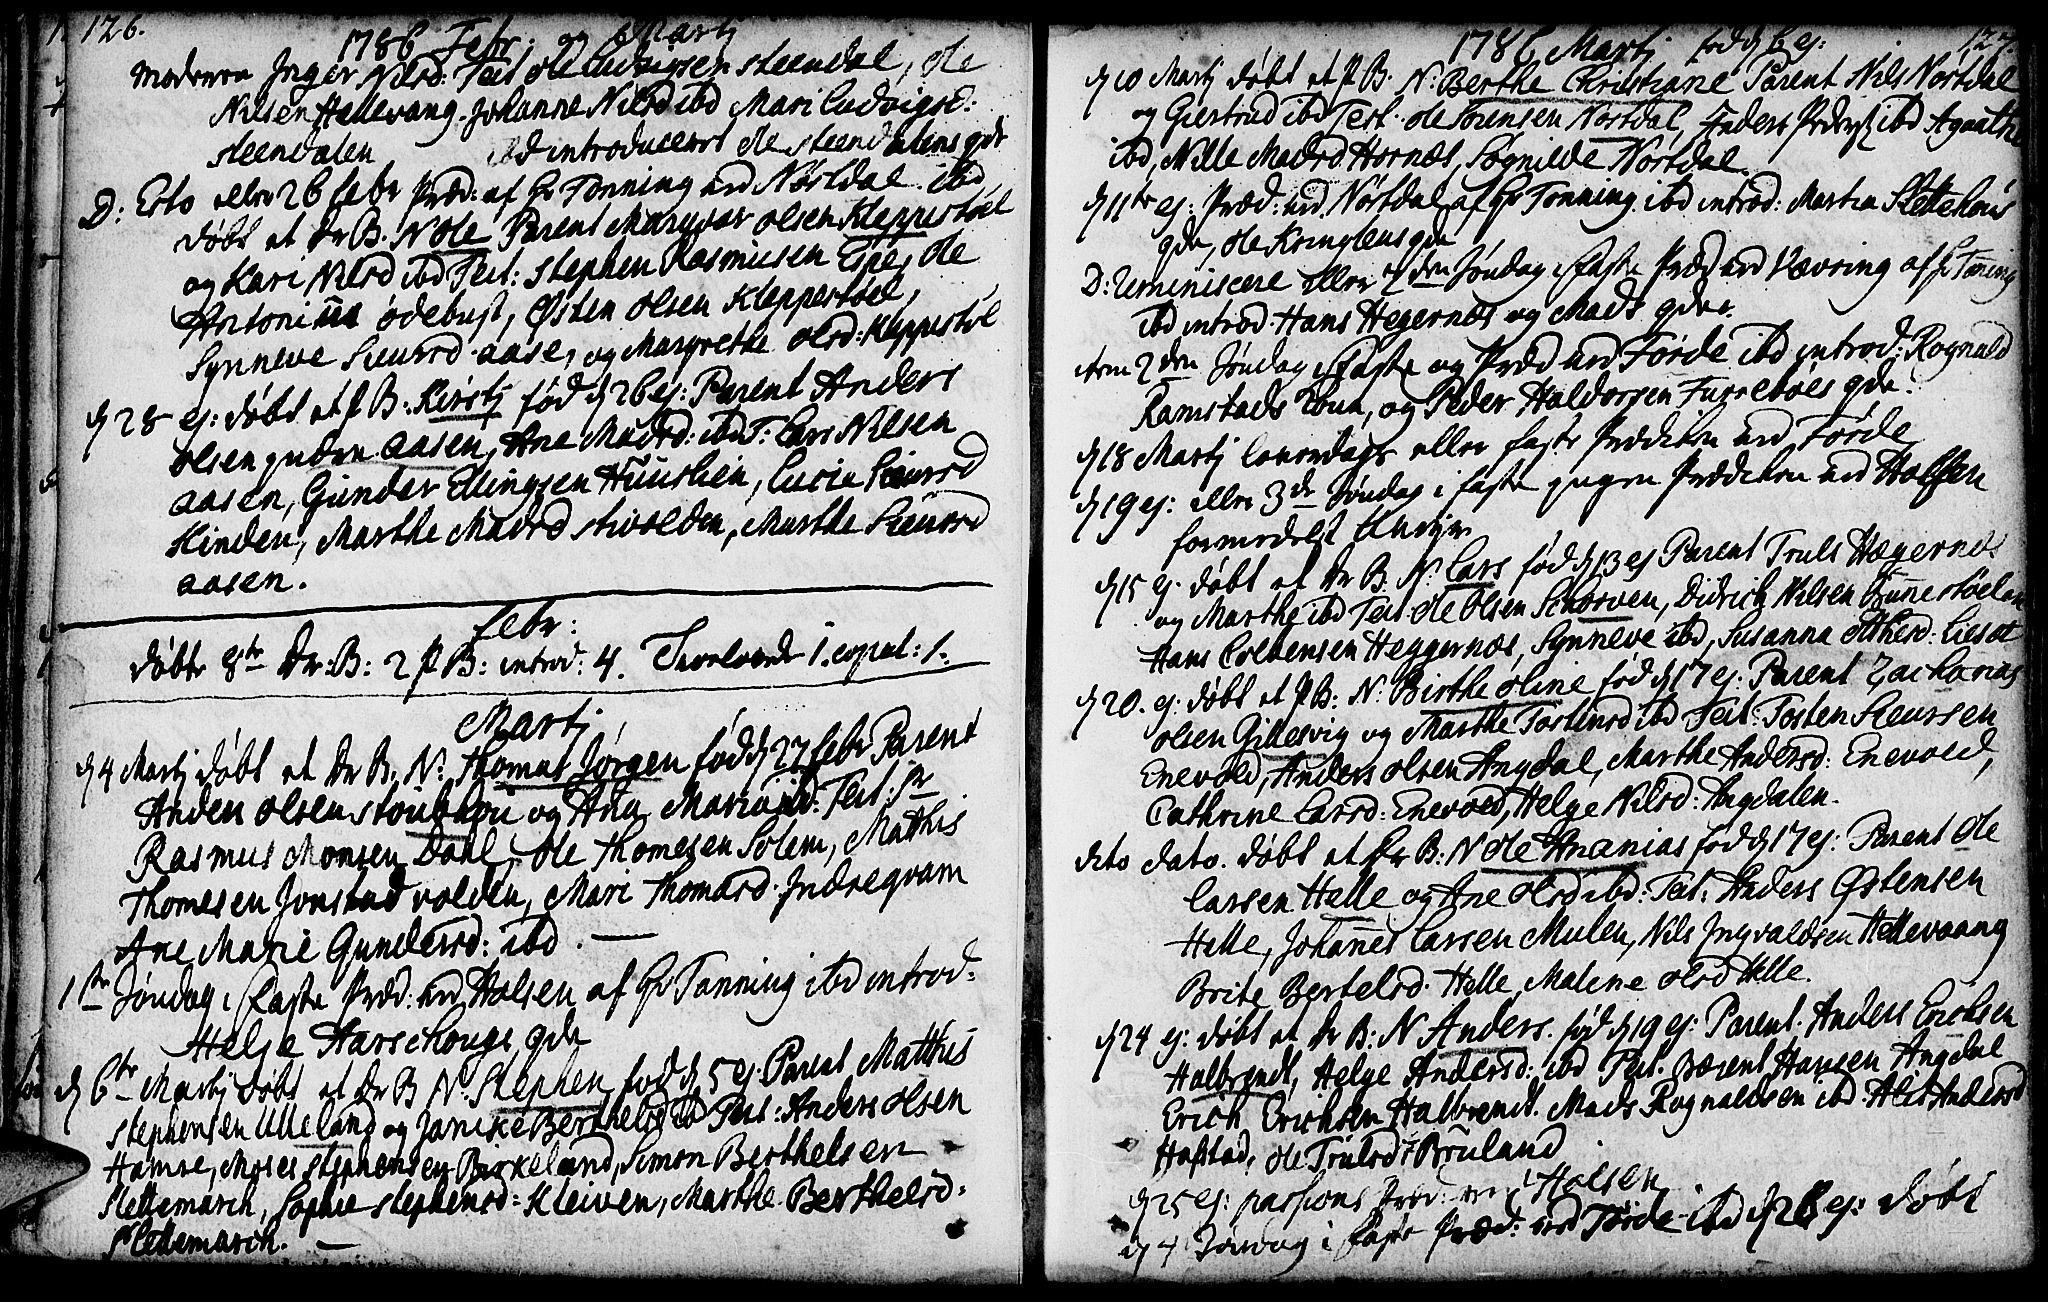 126.
1786 Febr: og Martj
Moderen Inger Nilsd: Test Ole Ludvigsen Steendal, Ole
Nilsen Hellevang. Johanne Nilsd ibd Mari Ludvigsd:
Steendalen ibd introduceret Ole Steendalens qde
D: Esto eller 26 febr Præd: af Hr Tonning ved Nørdal. ibd
døbt et Dr B. N Ole Parent Olsen Kleppestøel
og Kari Nilsd ibd Test: Stephen Rasmusen Espe, Ole
Antoni ødebust, Østen Olsen Kleppestøel,
Synneve Siursd aase, og Margrethe Olsd: Kleppestøl
d 28 ej: døbt et p B: Kirstj fød d 26 ej: Parent Anders
Olsen aasen, Ane Madsd: ibd T: Lars Nilsen
aasen, Gunder Ellingsen Huuslien, Lucie Siursd
Hinden, Marthe Madsd Stvolden, Marthe Siursd
aasen.
Febr:
døbte 8te Dr: B: 2 p B: introd: 4. Trolovede 1. copul: 1.
Martj
d 4 Martj døbt et Dr B. N. Thomas Jørgen fød d 27 febr Parent
Anders Olsen og Ana Test:
Rasmus Monsen Dahl, Ole Thomesen Solem, Mathis
Thomesen Jonstad volden, Mari Thomasd. Indregvam
Ane Marie Gundersd: ibd.
1ste Søndag i Faste Præd: ved Holsen af Hr Tonning ibd introd:
Helge Aarschougs qde
d 6te Martj døbt et Dr B N. Stephen fød d 5 ej: Parent Matthis
Stephensen Ulleland og Janike Berthelsd ibd Test: Anders Olsen
Hamre, Moses Stephensen Birkeland, Simon Berthelsen
Slettemarch, Sophie Stephensd: Kleiven, Marthe Berthelsd:
Slettemarch.
127.
1786 Martj fød d 6 ej:
d 10 Martj døbt et p B. N. Berthe Christiane Parent Nils Nørdal
og Giertrud ibd Test. Ole Sørensen Nørdal, Anders ibd Agathe
ibd, Nille Madsd Hornæs, Sognilde Nørdal.
d 11te ej: Præd: ved Nørdal af Hr Tonning. ibd introd: Martin
qde, Ole Kringlens qde
D: Reminiscere eller 2den Søndag i Faste Præd ved Nævring af Hr Tonning
ibd introd. Hans Hegernæs og Mads qder.
item 2den Søndag i Faste og Præd ved Førde ibd introd: Rognald
Ramstads Kone, og Peder Haldorsen Furreboes qde.
d 18 Martj Løverdags eller Faste Prædiken ved Førde
d 19 ej: eller 3de Søndag i Faste ingen Prædiken ved Holsen
formedelst Uveyr
d 15 ej. døbt et Dr B. N. Lars fød d 13 ej Parent Truls Hægernæs
og Marthe ibd Test. Ole Olsen Schorven, Didrich Nilsen
Hans Colbensen Heggernæs, Synneve ibd, Susanna
d 20. ej: døbt et p B: N. Birthe Oline fød d 17 ej: Parent Zacharias
Olsen Gillesvig og Marthe Tostensd ibd Test: Tosten Siursen
Enevold, Anders Olsen Angdal, Marthe Andersd: Enevold,
Cathrine Larsd: Enevold, Helge Nilsd: Angdalen.
dito dato. døbt et Dr B: N Ole Ananias fød d 17 ej: Parent Ole
Larsen Helle og Ane Olsd ibd: Test: Anders Østensen
Helle, Johannes Larsen Mulen, Nils Ingvaldsen Hellevaang
Brite Bertelsd. Helle, Malene Olsd Helle.
d 24 ej: døbt et Dr B: N Anders. fød d 19 ej: Parent. Anders Erichsen
Halbrendt, Helge Andersd: ibd Test. Hansen Angdal
Erich Erichsen Halbrendt. Mads Rognaldsen ibd. Andersd
Hafstad, Ole Trulsd Bruland
d 25 ej: passions Præd: ved Holsen
d 4 Søndag i Faste Præd: ved Førde ibd d 26 ej: døbt